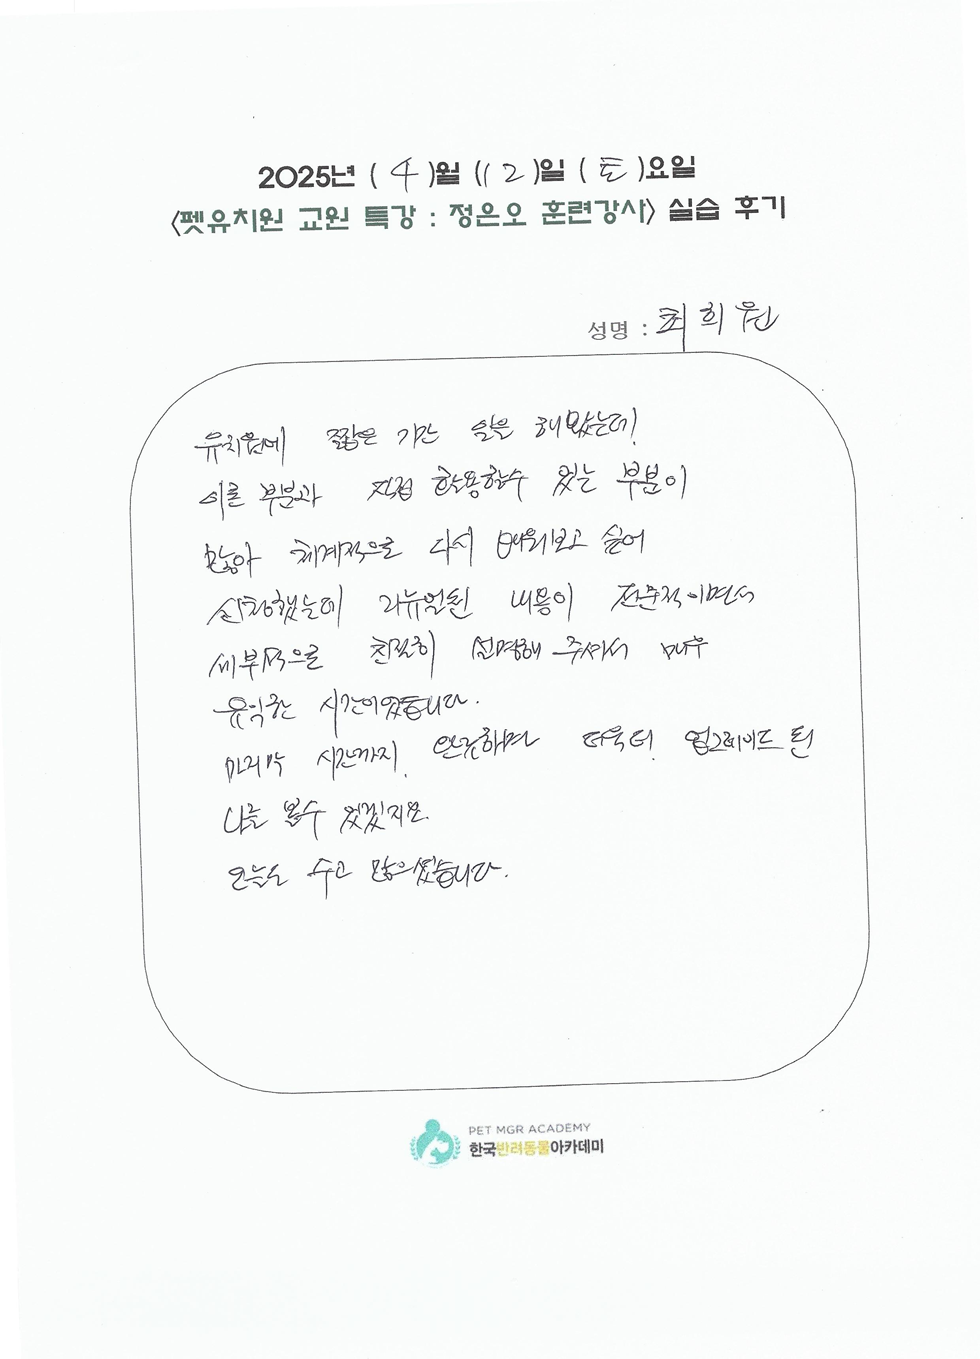 2025년 (4)월 (12)일 (토)요일
<펫유치원 교원 특강 : 정은오 훈련강사> 실습 후기
성명 : 최희원
유치원에 짧은 기간 일을 해봤는데!
이론 부분과 직접 활용할수 있는 부분이
많아 체계적으로 다시 배워보고 싶어
신청했는데 리뉴얼된 내용이 전문적이면서
세부적으로 친절히 설명해 주셔서 매우
유익한 시간이었습니다.
마지막 시간까지, 연구하면 더욱더! 업그레이드 된
나를 볼수 있겠지요.
오늘도 수고 많으셨습니다.
PET MGR ACADEMY
한국반려동물아카데미